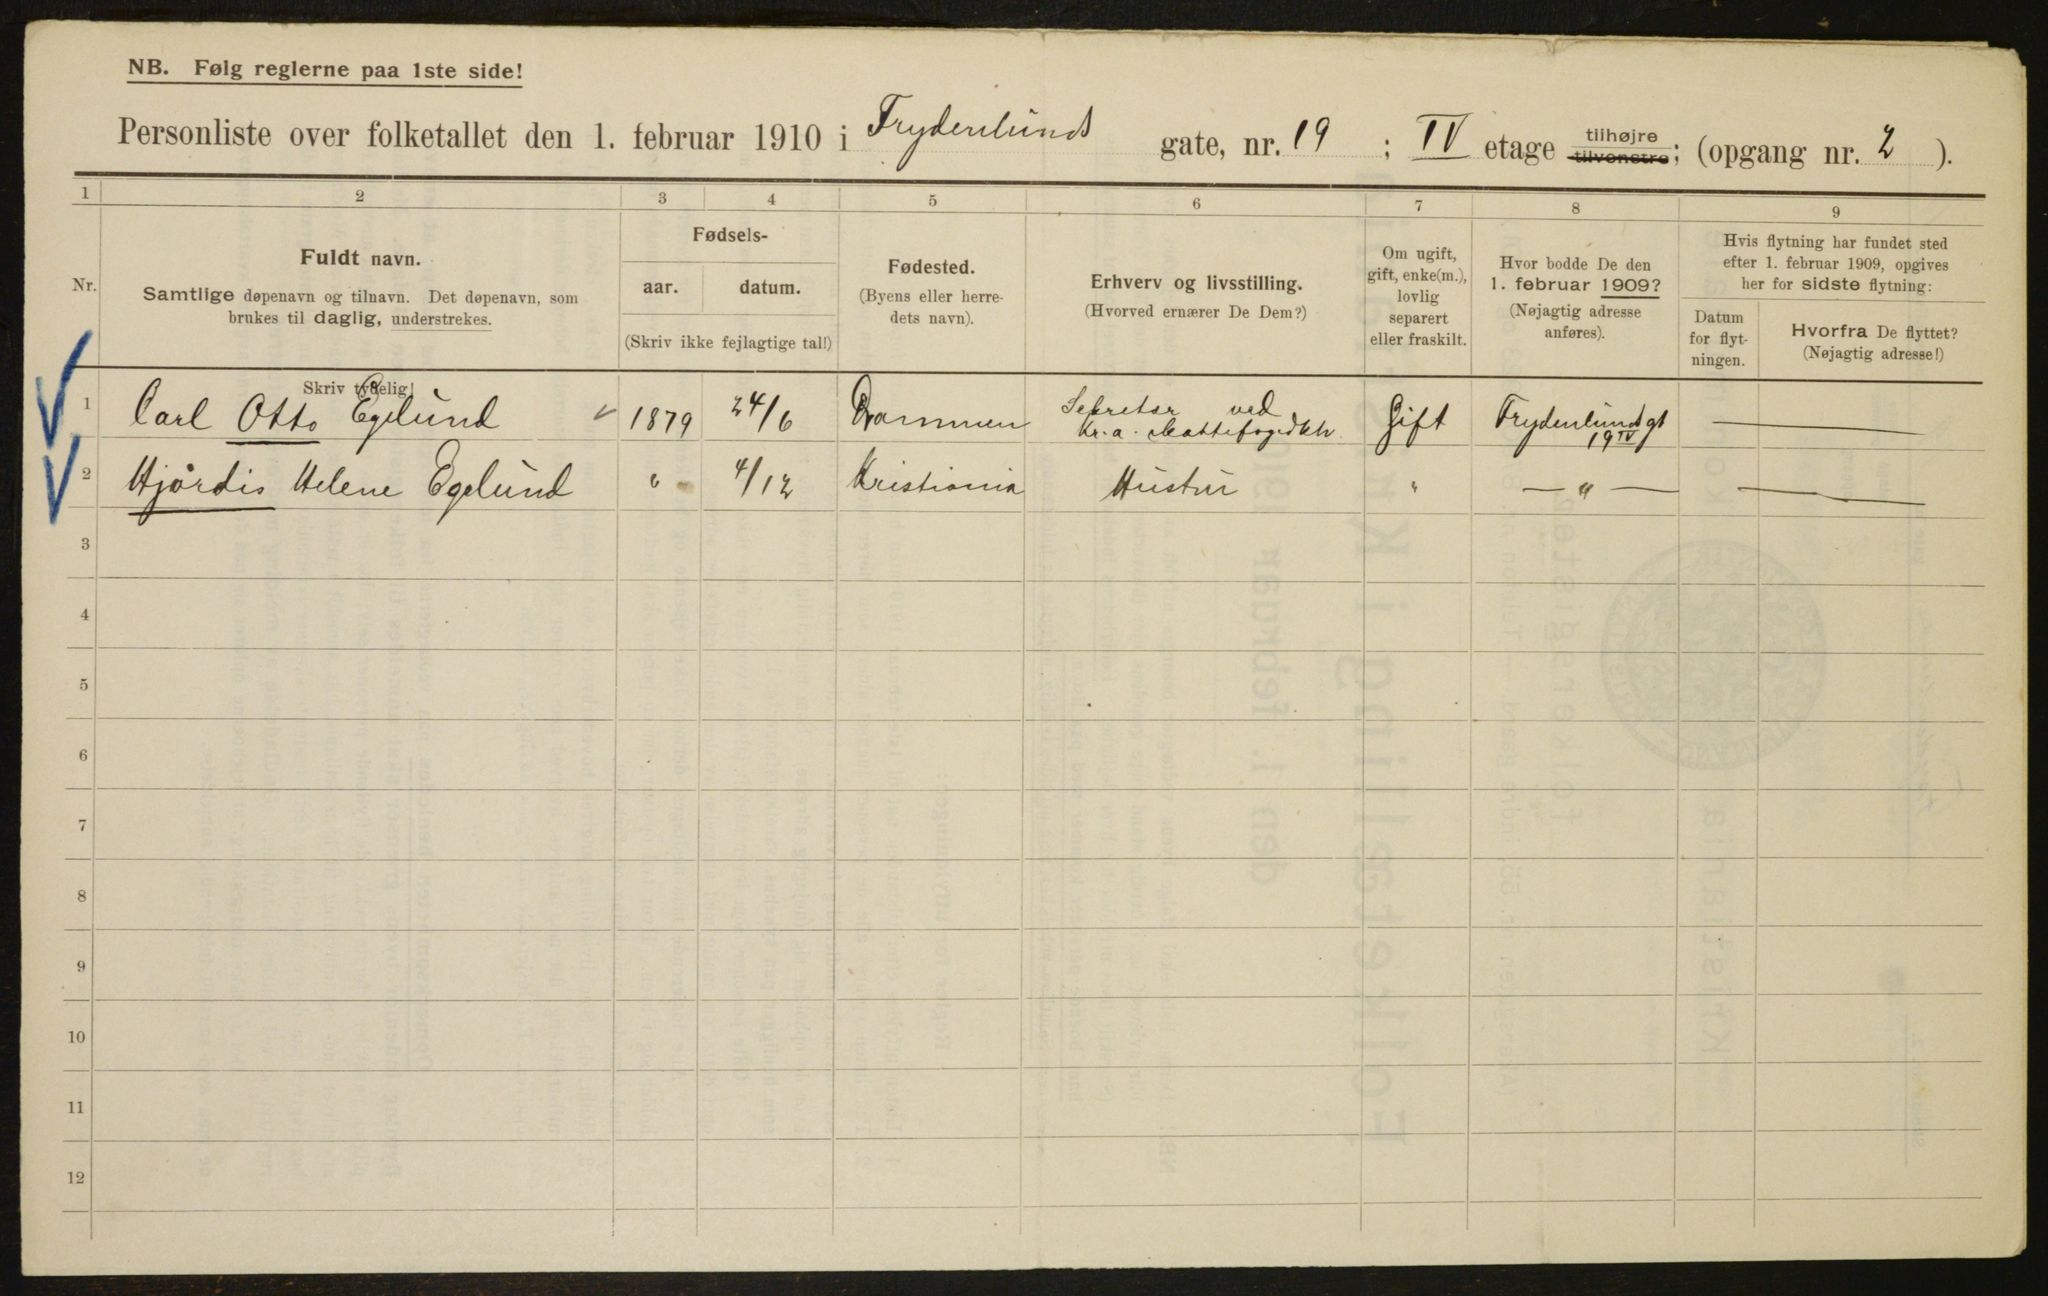 NB. Følg reglerne paa 1ste side!
Personliste over folketallet den 1. februar 1910 i Frydenlunds gate, nr. 19 ; IV etage tilhøjre tilvenstre; (opgang nr. 2 ).
1 2 3 4 5 6 7 8 9
Nr.
Fuldt navn.
Samtlige døpenavn og tilnavn. Det døpenavn, som
brukes til daglig, understrekes.
Skriv tydelig!
Fødsels-
aar. datum.
(Skriv ikke fejlagtige tal!)
Fødested.
(Byens eller herre-
dets navn).
Erhverv og livsstilling.
(Hvorved ernærer De Dem?)
Om ugift,
gift, enke(m.),
lovlig
separert
eller fraskilt.
Hvor bodde De den
1. februar 1909?
(Nøjagtig adresse
anføres).
Hvis flytning har fundet sted
efter 1. februar 1909, opgives
her for sidste flytning:
Datum
for flyt-
ningen.
Hvorfra De flyttet?
(Nøjagtig adresse!)
1 Carl Otto Egelund 1879 24/6 Drammen Sekretær ved Kr.a. Gift Frydenlundsgt 19 IV
2 Hjørdis Helene Egelund " 4/12 Kristiania Hustru " — " —
3
4
5
6
7
8
9
10
11
12